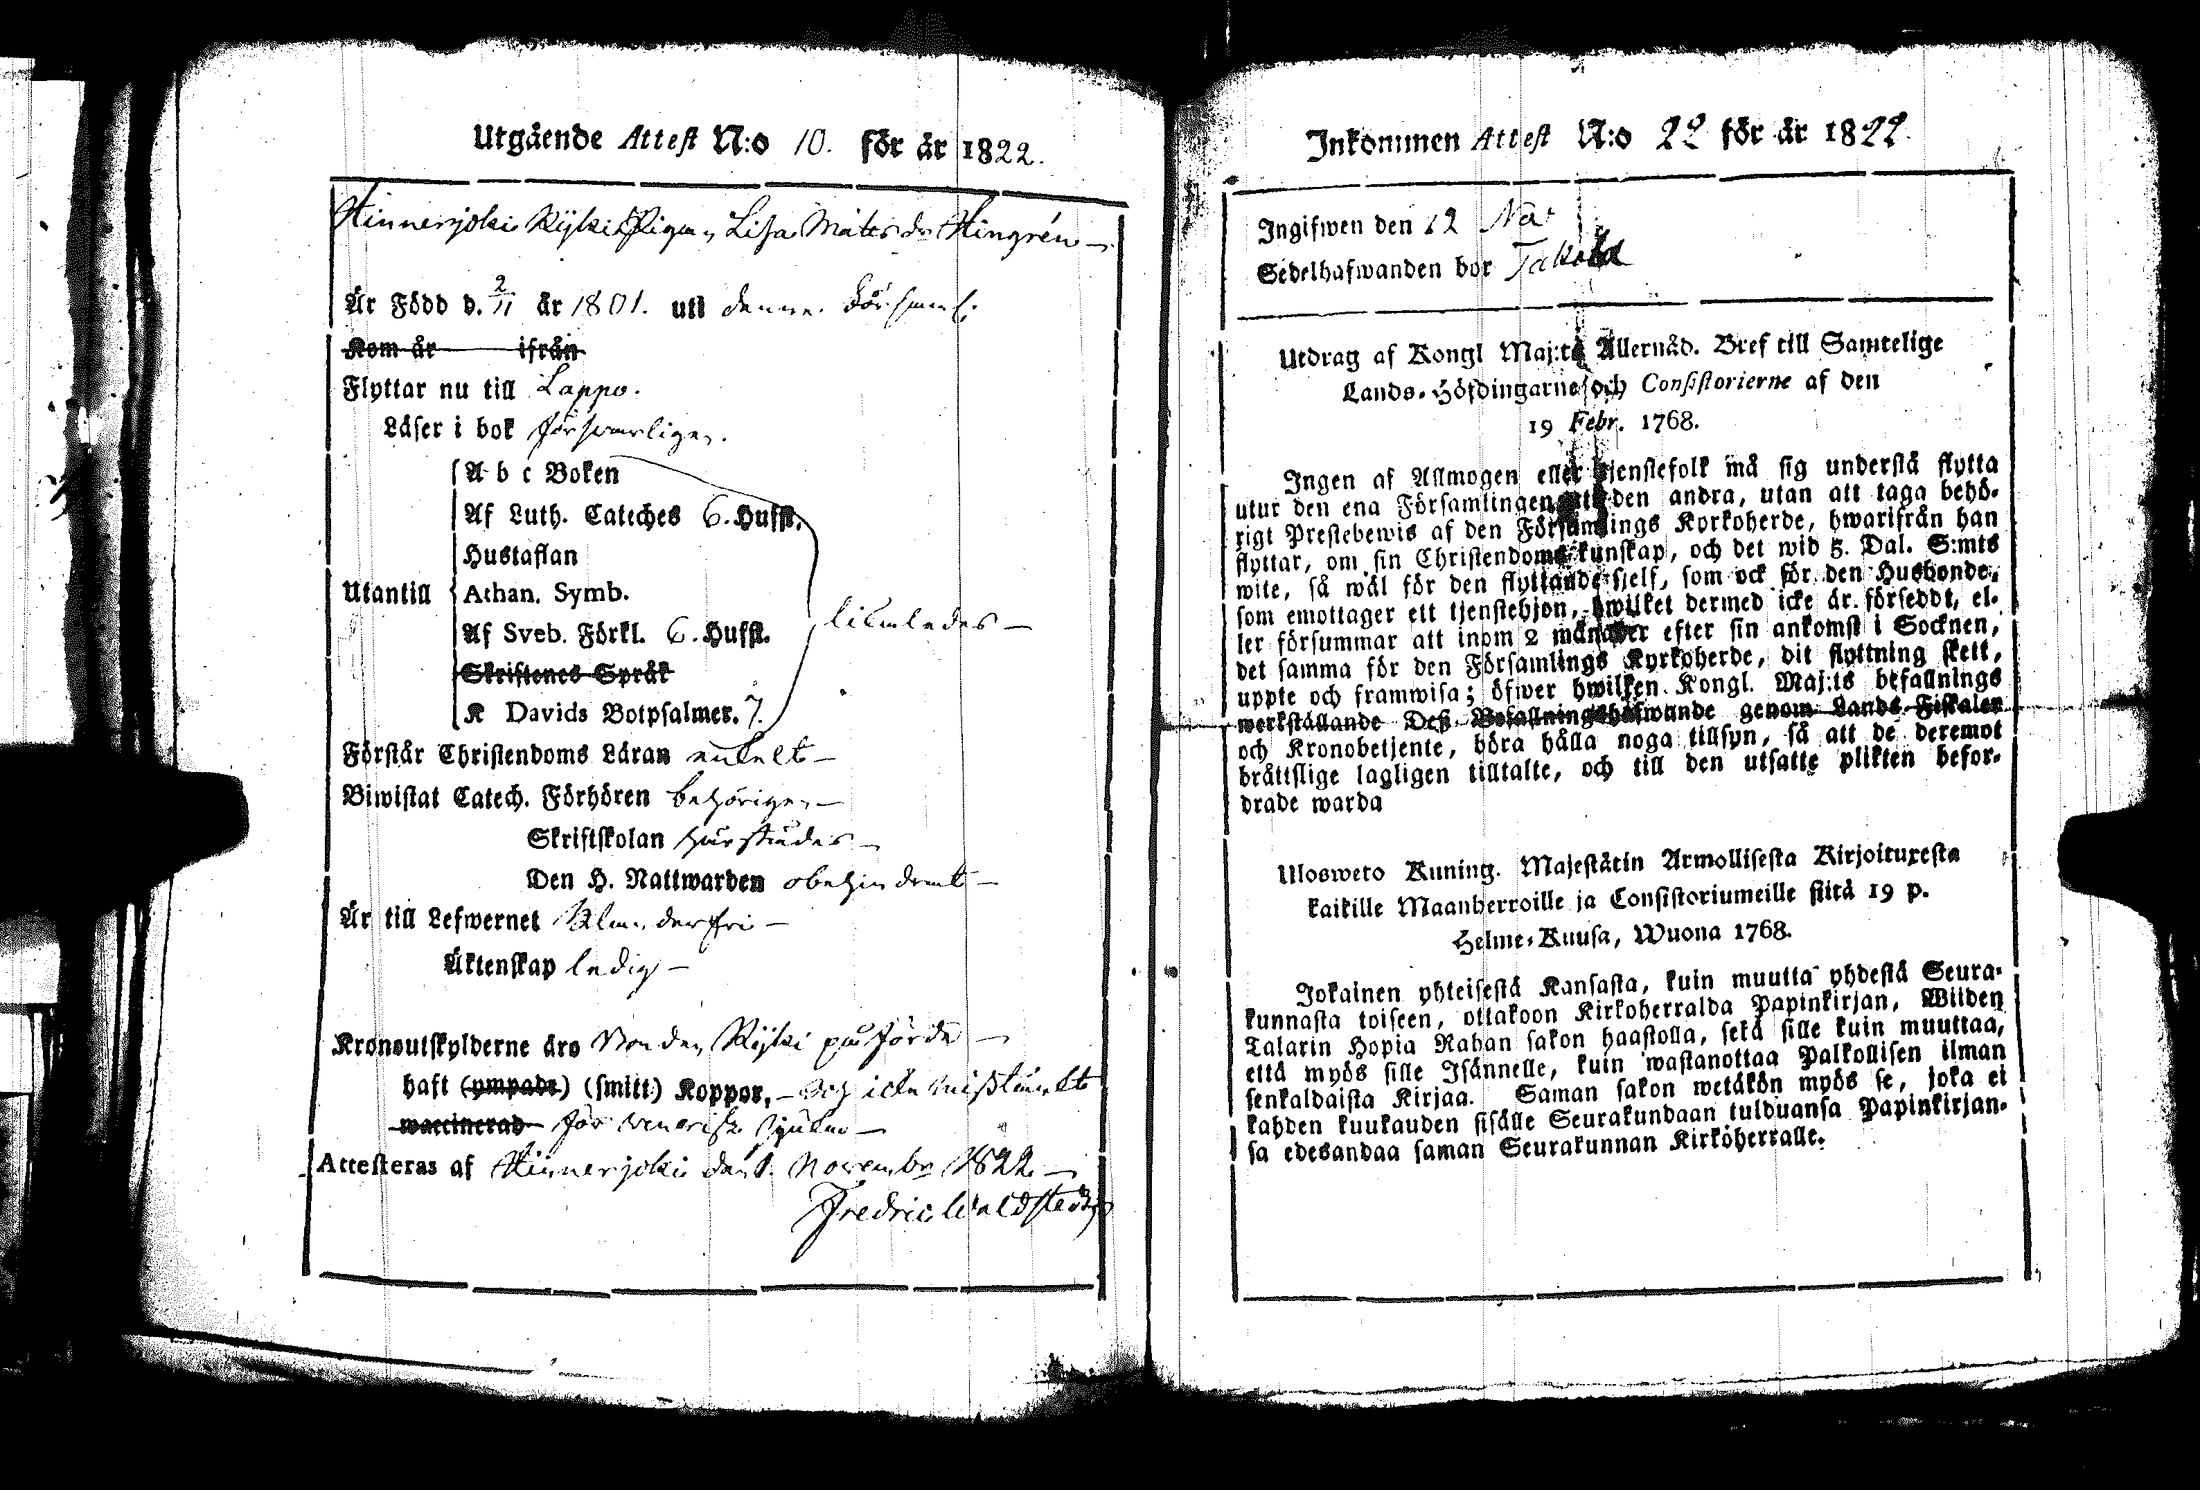 Utgående Attest N:o 10. för år 1822.
Hinnerjoki Rijki Pigan Lisa Matsdr Hingrén
Är Född d. 2/11 år 1801. uti denne Församl.
Kom år ifrån
Flyttar nu till Lappo.
Läser i bok försvarligen.
A b c Boken
Af Luth. Cateches 6. Hufst.
Hustaflan
Utantill Athan. Symb.
Af Sveb. Förkl. 6. Hufst.
likaledes
Skriftenes Språk
K Davids Botpsalmer. 7.
Förstår Christendoms Läran enkelt
Biwistat Catech. Förhören behörigen
Skriftskolan
Den H. Nattwarden obehindrat
Är till Lefwernet klanderfri
Äktenskap ledig
Kronoutskylderne äro Rijki påförde
haft (ympade) (smitt:) Koppor, och icke misstänkt
waccinerad för venerisk sjukdom
Attesteras af Hinnerjoki den 1. Novembr 1822
Fredric Waldstedt
Inkommen Attest N:o 22 för år 1822.
Ingifwen den 12 Nov
Sedelhafwanden bor
Utdrag af Kongl Maj:ts Allernåd. Bref till Samtelige
Lands-Höfdingarne och Consistorierne af den
19 Febr. 1768.
Ingen af Allmogen eller tjenstefolk må sig understå flytta
utur den ena Församlingen den andra, utan att taga behö-
rigt Prestebewis af den Församlings Kyrkoherde, hwarifrån han
flyttar, om sin Christendoms kunskap, och det wid 5. Dal. S:mts
wite, så wäl för den flyttande sjelf, som ock för den Husbonde,
som emottager ett tjenstehjon, hwilket dermed icke är försedt, el-
ler försummar att inom 2 månader efter sin ankomst i Socknen,
det samma för den Församlings Kyrkoherde, dit flyttning skett,
uppte och framwisa; öfwer hwilken Kongl. Maj:ts befallnings
werkställande Deß Befallningshafwande genom Lands-Fiskaler
och Kronobetjente, böra hålla noga tillsyn, så att de deremot
bråttslige lagligen tilltalte, och till den utsatte plikten befor-
drade warda
Ulosweto Kuning. Majestätin Armollisesta Kirjoituxesta
kaikille Maanherroille ja Consistoriumeille siitä 19 p.
Helme-Kuusa, Wuona 1768.
Jokainen yhteisestä Kansasta, kuin muutta yhdestä Seura-
kunnasta toiseen, ottakoon Kirkoherralda Papinkirjan, Wiiden
Talarin Hopia Rahan sakon haastolla, sekä sille kuin muuttaa,
että myös sille Isännelle, kuin wastanottaa Palkollisen ilman
senkaldaista Kirjaa. Saman sakon wetäkön myös se, joka ei
kahden kuukauden sisälle Seurakundaan tulduansa Papinkirjan-
sa edesandaa saman Seurakunnan Kirkoherralle.